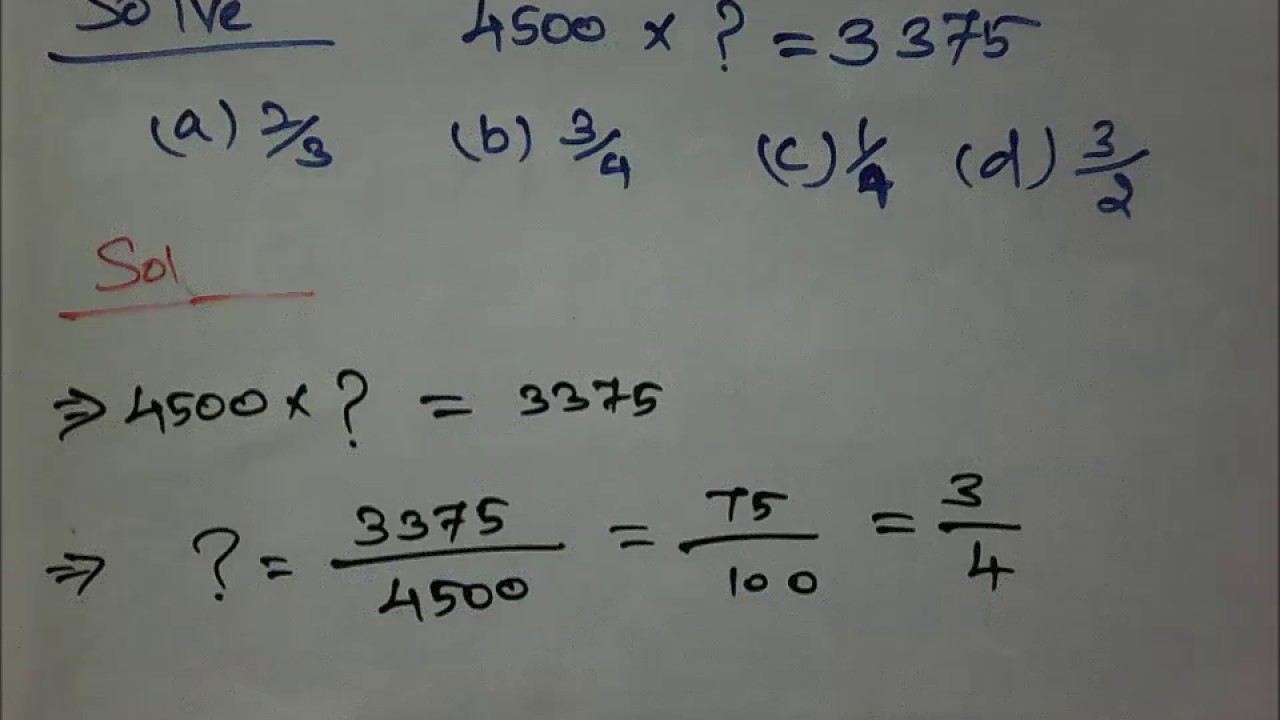 Solve 4500 × ? = 3375
(a) 2/3 (b) 3/4 (c) 1/4 (d) 3/2
Sol
⇒ 4500 × ? = 3375
⇒ ? = 3375/4500 = 75/100 = 3/4